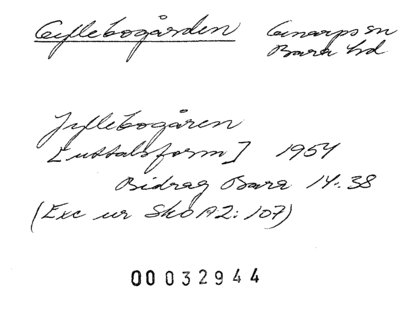 Gyllebogården Genarps sn
Bara hd
Jyllebogåren
[uttalsform] 1954
Bidrag Bara 14:38
(Exc ur Sko A2: 107)
00032944